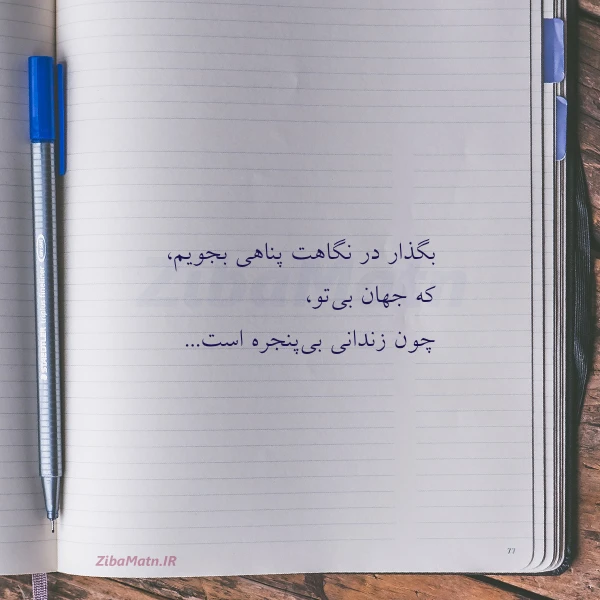 بگذار در نگاهت پناهی بجویم،
که جهان بی‌تو،
چون زندانی بی‌پنجره است...
ZibaMatn.IR
77